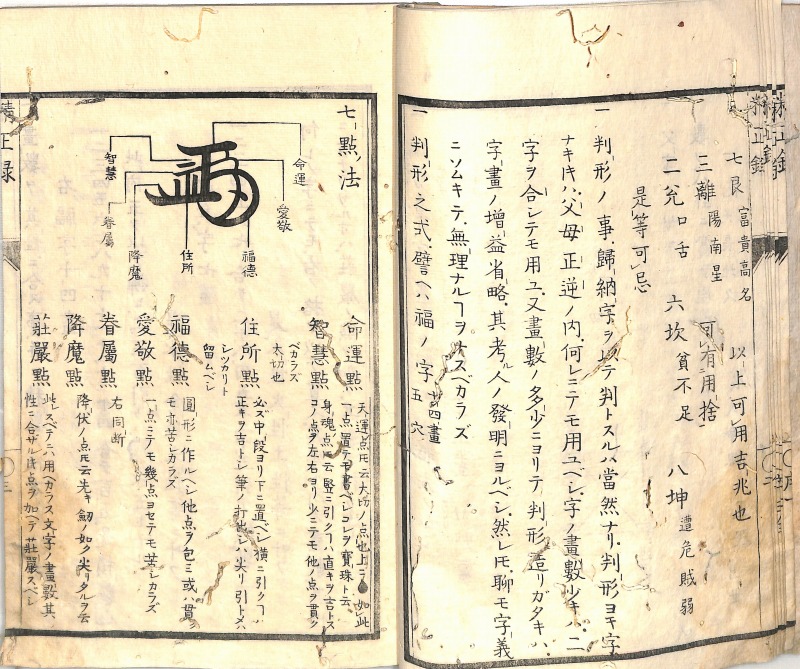 七艮 富貴高名 以上可レ用吉兆也
三離 陽南星 可レ有二用捨一
二兌 口舌 六坎 貧不足 八坤 遭危賊弱
是等可レ忌
一 判形ノ事、歸納字ヲ以テ判トスルハ當然ナリ、判形ヨキ字
ナキ𪜈ハ、父母正逆ノ内、何レニテモ用ユベシ、字ノ畫數少キハ、二
字ヲ合シテモ用ユ、又畫數ノ多少ニヨリテ判形造リガタキハ、
字畫ノ增益省略、其考人ノ發明ニヨルベシ、然レ𪜈、聊モ字義
ニソムキテ、無理ナルヿヲナスベカラズ
一 判形之式、譬ヘハ福ノ字 十四畫 五穴
七點ノ法
命運
愛敬
福德
住所
降魔
眷屬
智慧
命運點 天運点𪜈云大切ノ点也上ヲ●如此
一点置テモ書ベシコレヲ寶珠ト云
智慧點 身魂点𪜈云竪ニ引クヿハ直キヲ吉トス
コノ点ヲ左右ヨリ少ニテモ他ノ点ヲ貫ク
ベカラズ
大切也
住所點 必ズ中段ヨリ下ニ置ベシ橫ニ引クヿハ
正キヲ吉トシ筆ノ打出シハ尖リ引トメハ
シツカリト
留ムベシ
福德點 圓形ニ作ルヘシ他点ヲ包ミ或ハ貫ク
モ亦苦シカラズ
愛敬點 一点ニテモ幾点ヨセテモ苦シカラズ
眷屬點 右同斷
降魔點 降伏ノ点𪜈云先キ劔ノ如ク尖リタルヲ云
莊嚴點 此レスベテニハ用ヘカラス文字ノ畫數其
性ニ合サル𪜈点ヲ加ヘテ莊嚴スベシ